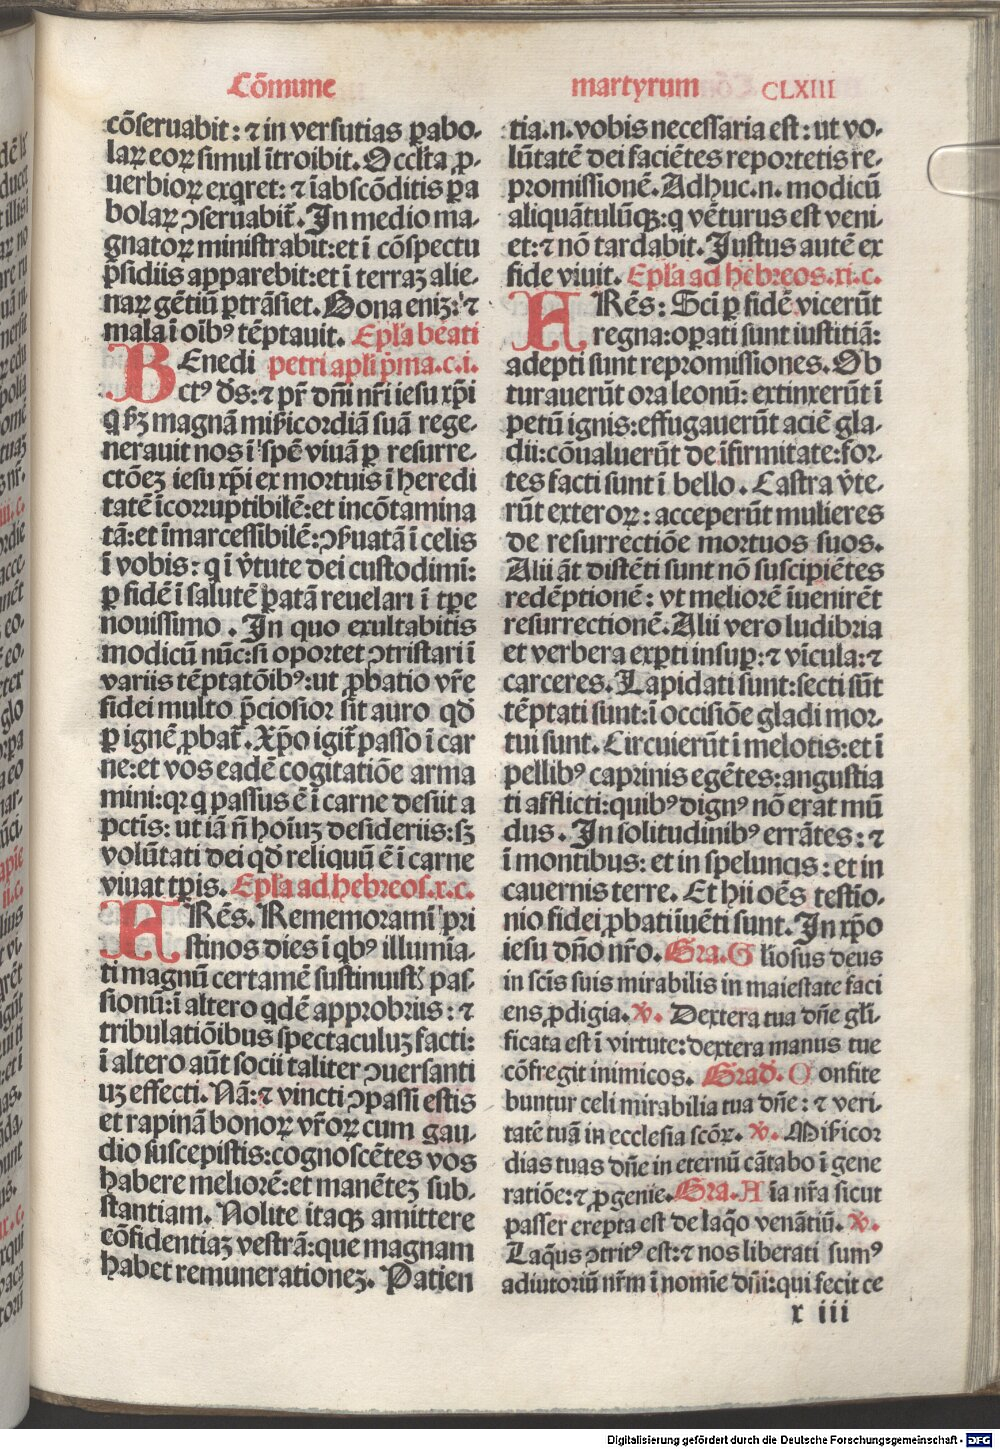 Cõmune martyrum CLXIII
cõseruabit: ⁊ in versutias ꝑabo-
laꝝ eoꝝ simul ĩtroibit. Occl̃ta ꝓ-
uerbioꝝ exq̃ret: ⁊ ĩ abscõditis ꝑa
bolaꝝ ꝯseruabit̃. In medio ma-
gnatoꝝ ministrabit: et ĩ cõspectu
p̃sidiis apparebit: et ĩ terraʒ alie-
naꝝ gẽtiũ ꝑtrãsiet. Bona eniʒ: ⁊
mala ĩ oĩbꝰ tẽptauit. Epl̃a beati
BEnedi petri apl̃i p̃ma.c.i.
ctꝰ d̃s: ⁊ pr̃ dñi nr̃i iesu xp̃i
q̃ ẞʒ magnã mĩcordiã suã rege-
nerauit nos ĩ spẽ viuã ꝑ resurre-
ctõeʒ iesu xp̃i ex mortuis ĩ heredi
tatẽ ĩcorruptibilẽ: et incõtamina
tã: et ĩmarcessibilẽ: ꝯẜuatã ĩ celis
ĩ vobis: q̃ ĩ ṽtute dei custodimĩ:
ꝑ fidẽ ĩ salutẽ ꝑatã reuelari ĩ tp̃e
nouissimo. In quo exultabitis
modicũ nũc: si oportet ꝯtristari ĩ
variis tẽptatõibꝰ: ut ꝓbatio vr̃e
fidei multo p̃ciosior sit auro qd̃
ꝑ ignẽ ꝓbat̃. Xp̃o igit̃ passo ĩ car
ne: et vos eadẽ cogitatiõe arma
mini: qꝛ q̃ passus ẽ ĩ carne desiit a
pctĩs: ut iã ñ hoĩuʒ desideriis: sʒ
volũtati dei qd̃ reliquũ ẽ ĩ carne
viuat tp̃is. Epl̃a ad hebreos.x.c.
FRẽs. Rememoramĩ pri
stinos dies ĩ qbꝰ illumĩa-
ti magnũ certamẽ sustinuist̃ pas-
sionũ: ĩ altero qdẽ approbriis: ⁊
tribulatiõibus spectaculuʒ facti:
ĩ altero aũt socii taliter ꝯuersanti
uʒ effecti. Nã: ⁊ vincti ꝯpassi estis
et rapinã bonoꝝ vr̃oꝝ cum gau-
dio suscepistis: cognoscẽtes vos
habere meliorẽ: et manẽteʒ sub-
stantiam. Nolite itaqʒ amittere
cõfidentiaʒ vestrã: que magnam
habet remunerationeʒ. Patien
tia.n.vobis necessaria est: ut vo-
lũtatẽ dei faciẽtes reportetis re-
promissionẽ. Adhuc.n. modicũ
aliquãtulũqʒ: q̃ vẽturus est veni-
et: ⁊ nõ tardabit. Justus autẽ ex
fide viuit. Epl̃a ad hebreos.xi.c.
FRẽs: Sci ꝑ fidẽ vicerũt
regna: oꝑati sunt iustitiã:
adepti sunt repromissiones. Ob
turauerũt ora leonũ: extinxerũt ĩ
petũ ignis: effugauerũt aciẽ gla-
dii: cõualuerũt de ĩfirmitate: for-
tes facti sunt ĩ bello. Castra ṽte-
rũt exteroꝝ: acceperũt mulieres
de resurrectiõe mortuos suos.
Alii ãt distẽti sunt nõ suscipiẽtes
redẽptionẽ: vt meliorẽ ĩuenirẽt
resurrectionẽ. Alii vero ludibria
et verbera exꝑti insuꝑ: ⁊ vĩcula: ⁊
carceres. Lapidati sunt: secti sũt
tẽptati sunt: ĩ occisiõe gladi mor-
tui sunt. Circuierũt ĩ melotis: et ĩ
pellibꝰ caprinis egẽtes: angustia
ti afflicti: quibꝰ dignꝰ nõ erat mũ
dus. In solitudinibꝰ errãtes: ⁊
ĩ montibus: et in speluncis: et in
cauernis terre. Et hii oẽs testĩo-
nio fidei ꝓbati ĩuẽti sunt. In xp̃o
iesu dño nr̃o. Gra. Gl̃iosus deus
in scĩs suis mirabilis in maiestate faci
ens ꝓdigia. ꝟ. Dextera tua dñe gl̃i-
ficata est ĩ virtute: dextera manus tue
cõfregit inimicos. Grad̃. Confite
buntur celi mirabilia tua dñe: ⁊ veri-
tatẽ tuã in ecclesia scõꝝ. ꝟ. Mĩcor
dias tuas dñe in eternũ cãtabo ĩ gene
ratiõe: ⁊ ꝓgenie. Gra. Aĩa nr̃a sicut
passer erepta est de laq̃o venãtiũ. ꝟ.
Laq̃us ꝯtritꝰ est: ⁊ nos liberati sumꝰ
adiutoriũ nr̃m ĩ nomĩe dñi: qui fecit ce
x iii
Digitalisierung gefördert durch die Deutsche Forschungsgemeinschaft - DFG